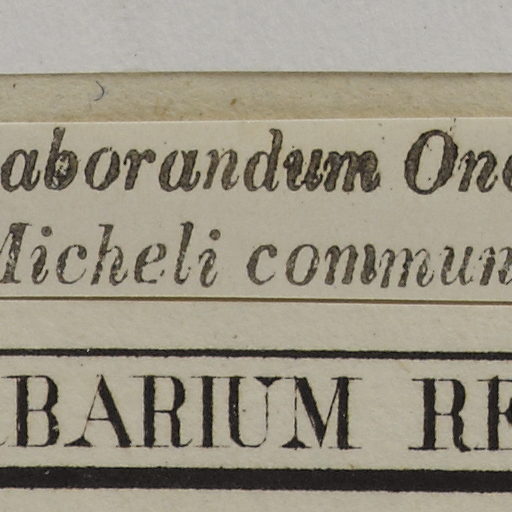 aborandum On
Micheli commun
BARIUM RE